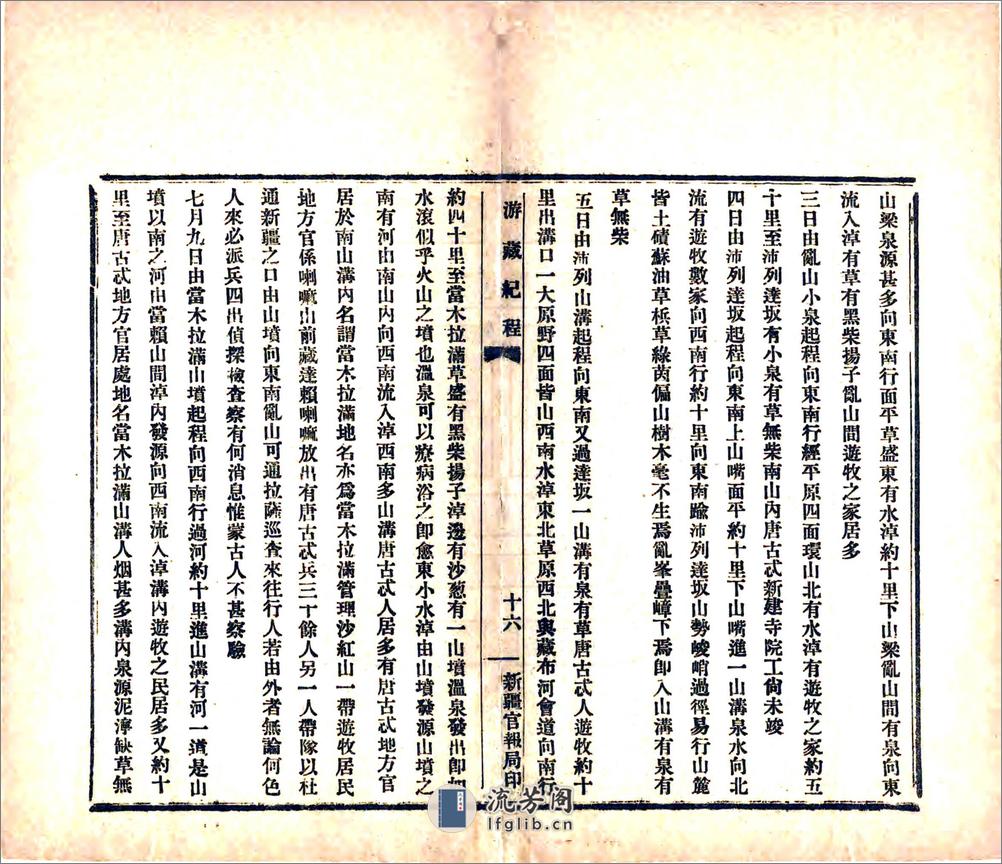 山梁泉源甚多向東南行面平草盛東有水淖約十里下山梁亂山間有泉向東
流入淖有草有黑柴揚子亂山間遊牧之家居多
三日由亂山小泉起程向東南行經平原四面環山北有水淖有遊牧之家約五
十里至沛列達坂有小泉有草無柴南山內唐古忒新建寺院工尙未竣
四日由沛列達坂起程向東南上山嘴面平約十里下山嘴進一山溝泉水向北
流有遊牧數家向西南行約十里向東南踰沛列達坂山勢峻峭過徑易行山麓
皆土磧蘇油草梹草綠茵偏山樹木毫不生焉亂峯疊嶂下焉即入山溝有泉有
草無柴
五日由沛列山溝起程向東南又過達坂一山溝有泉有草唐古忒人遊牧約十
里出溝口一大原野四面皆山西南水淖東北草原西北與藏布河會道向南行
游藏紀程
十六
新疆官報局印
約四十里至當木拉滿草盛有黑柴揚子淖邊有沙葱有一山墳溫泉發出即如
水滾似乎火山之墳也溫泉可以療病浴之即愈東小水淖由山墳發源山墳之
南有河由南山內向西南流入淖西南多山溝唐古忒人居多有唐古忒地方官
居於南山溝內名謂當木拉滿地名亦爲當木拉滿管理沙紅山一帶遊牧居民
地方官係喇嘛出前藏達賴喇嘛放出有唐古忒兵三十餘人另一人帶隊以杜
通新疆之口由山墳向東南亂山可通拉薩巡查來往行人若由外者無論何色
人來必派兵四出偵探檢查察有何消息惟蒙古人不甚察驗
七月九日由當木拉滿山墳起程向西南行過河約十里進山溝有河一道是山
墳以南之河由當賴山間淖內發源向西南流入淖溝內遊牧之民居多又約十
里至唐古忒地方官居處地名當木拉滿山溝人烟甚多溝內泉源泥濘缺草無
流芳閣
lfglib.cn